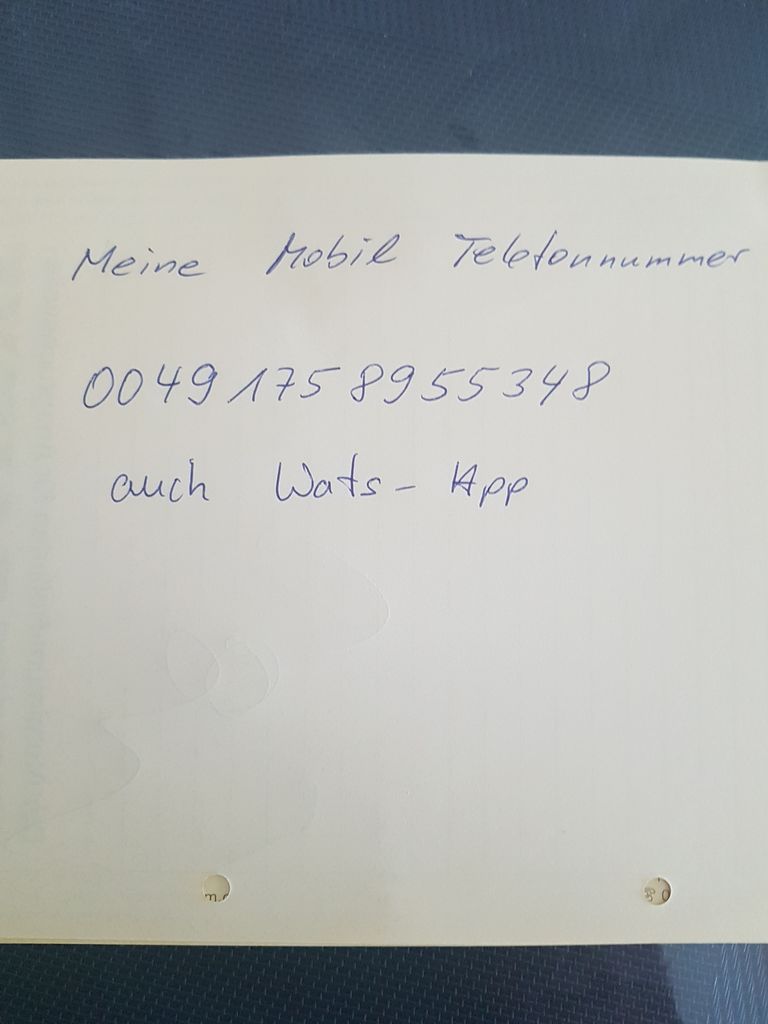 Meine Mobil Telefonnummer
0049 175 8955348
auch Wats-App